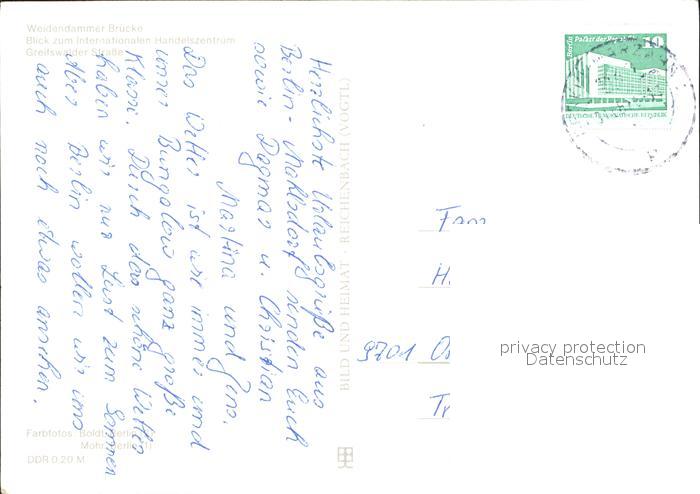 Weidendammer Brücke
Blick zum Internationalen Handelszentrum
Greifswalder Straße
Herzlichste Urlaubsgrüße aus
Berlin-Mahlsdorf senden Euch
sowie Dagmar u. Christian
Martina und Jens.
Das Wetter ist wie immer und
unser Bungalow ganz große
Klasse. Durch das schöne Wetter
haben wir nur Lust zum Sonnen
Aber Berlin wollen wir uns
auch noch etwas ansehen.
BILD UND HEIMAT · REICHENBACH (VOGTL)
Berlin Palast der Republik
10
DEUTSCHE DEMOKRATISCHE REPUBLIK
Fam
H.
9701
Tr
privacy protection
Datenschutz
Farbfotos: Boldt, Berlin
Mohr, Berlin (1)
DDR 0,20 M